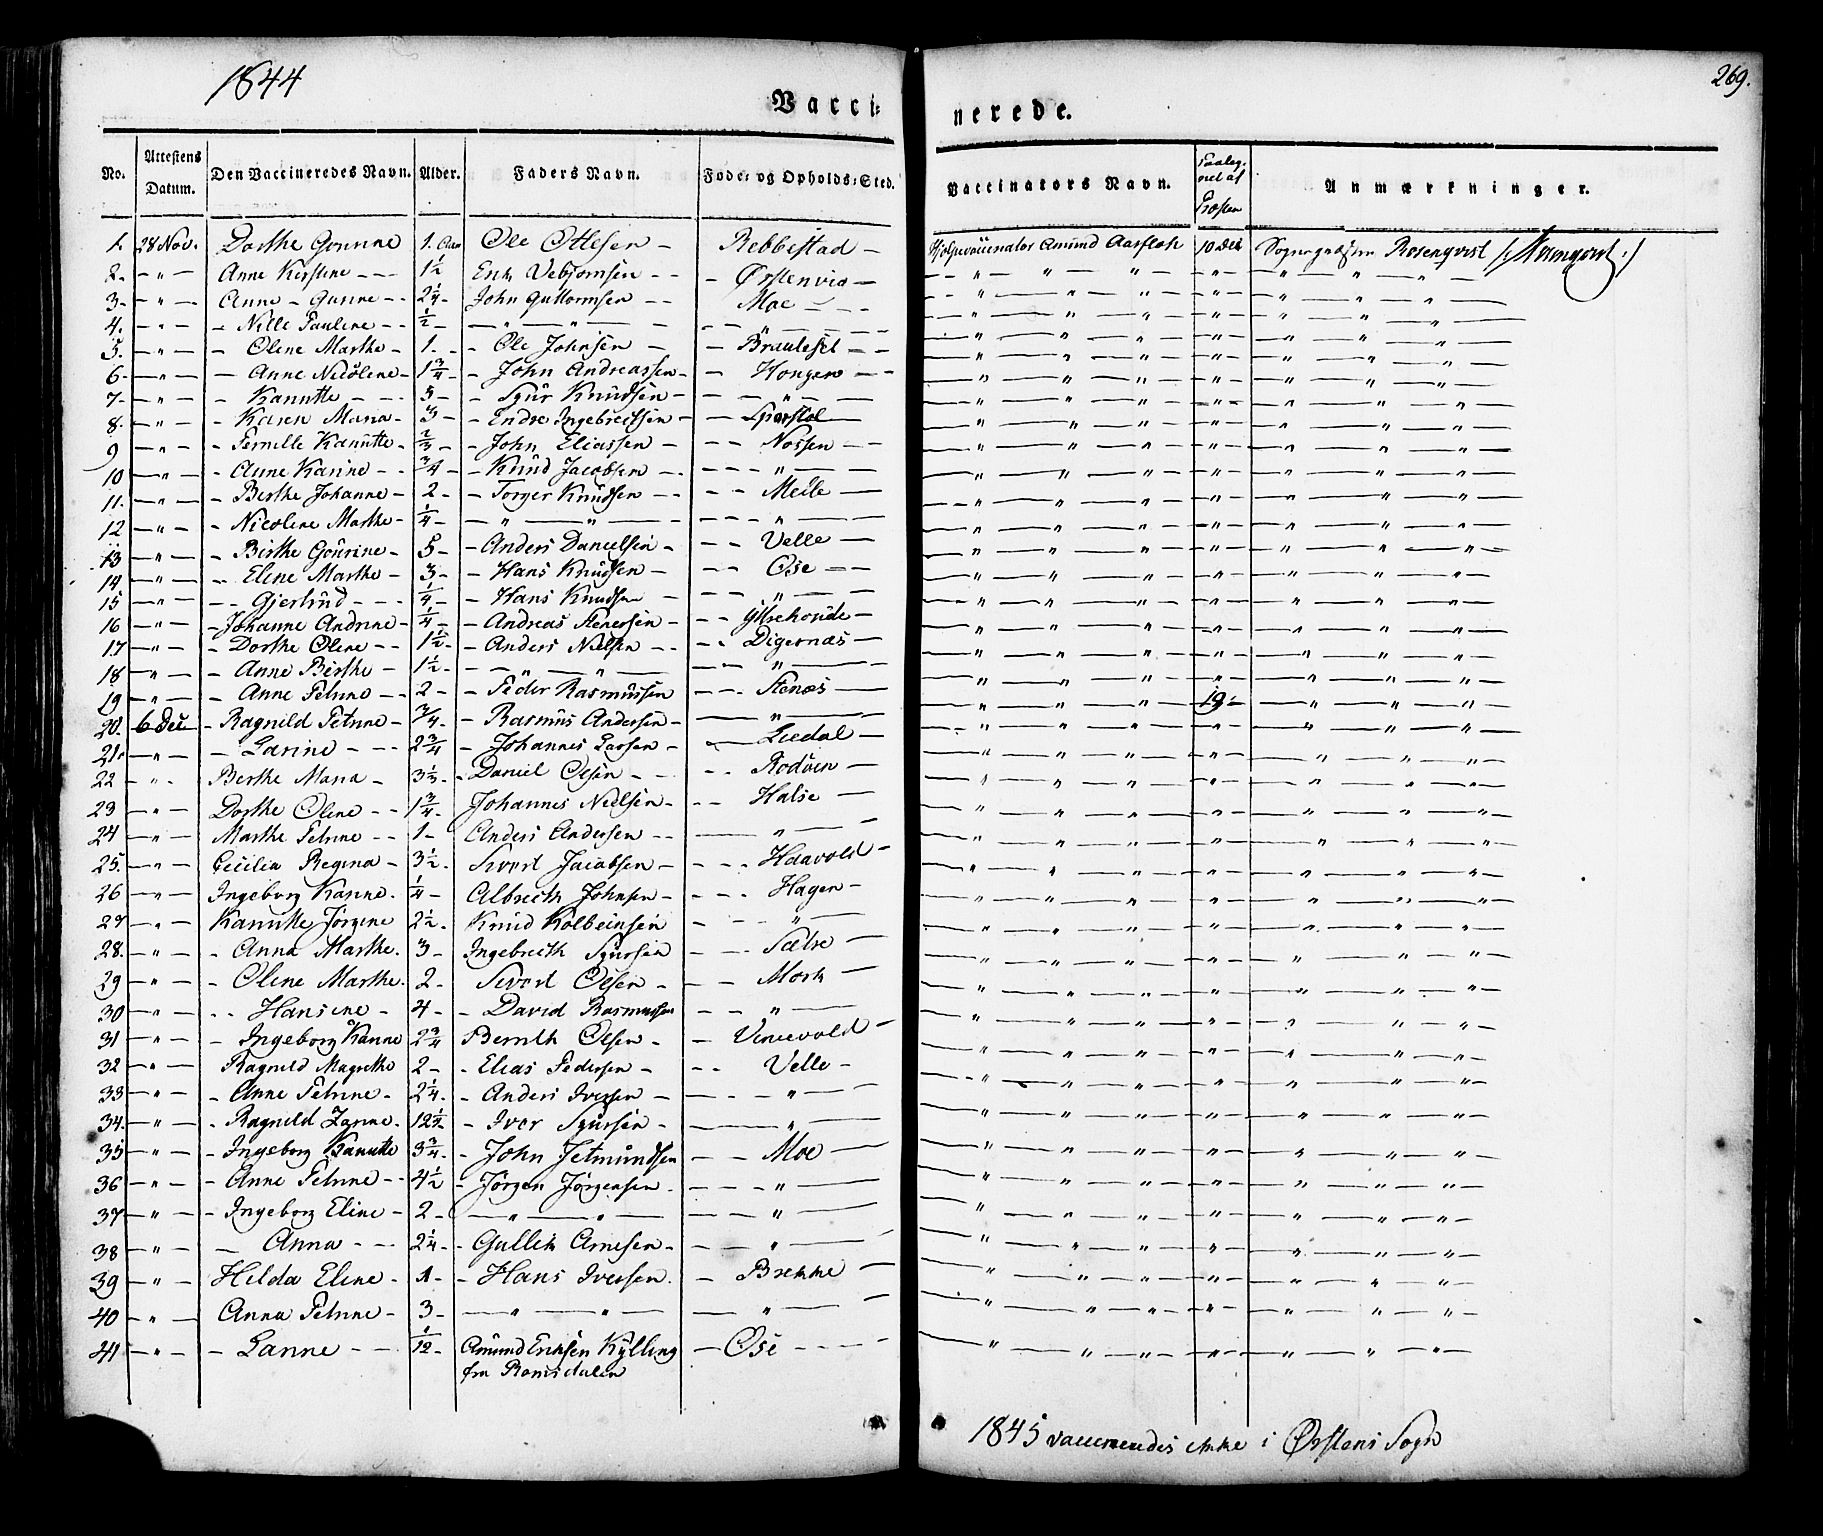 1844
269.
Vacci=
nerede.
No. Attestens Datum. Den Vaccineredes Navn. Alder. Faders Navn. Føde= og Opholds=Sted. Vaccinators Navn. Anmærkninger.
1. 28 Nov. Dorthe Gourine 1. Ole Ottesen — Rebbestad — Amund Aarflot 10 Dec Rosenqvist
2 — " — Anne Kirstine — 1½ Erik Vebjørnsen — Ørstenvig — " — " — "
3 — " — Anne — Gurine — 2¼ — John Guttormsen — Moe — " — " — "
4. — " — Nille Pauline — ½ — " — " — " —
5. — " — Oline Marthe — 1. — Ole Johnsen — — " — " — "
6 — " — Anne Nicoline — 1¾ — John Andreassen — Hongen — " — " — "
7 — " — Kanutte — 5 — Sjur Knudsen — " — " — "
8. — " — Karen Maria — 3 — Endre Ingebreitsen — — " — " — "
9 — " — Pernille Kanutte — ⅔ — John Eliassen — Nossen — " — " — "
10 — " — Anne Karine — ¾ — Knud Jacobsen — " — " — "
11. — " — Berthe Johanne — 2 — Torger Knudsen — Meile — " — " — "
12 — " — Nicoline Marthe — ¼ — " — " — " —
13 — " — Birthe Gourine — 5 — Anders Danielsen — Velle — " — " — "
14 — " — Eline Marthe — 3 — Hans Knudsen — Øse — " — " — "
15 — " — Gjertrud — ¼ — Hans Knudsen — " — " — "
16 — " — Johanne Andrine — ¼ — Andreas Stenersen — Yttrehovde — " — " — "
17 — " — Dorthe Oline — 1½ — Anders Nielsen — Digernæs — " — " — "
18 — " — Anne Birthe — 1½ — " — " — " —
19 — " — Anne Petrine — 2 — Peder Rasmussen — Stenæs — " — " — "
20. 6 Dec — Ragnild Petrine — ¾ — Rasmus Andersen — " — 19 — " — "
21. — " — Larine — 2¾ — Johannes Larsen — Liedal — " — " — "
22 — " — Berthe Maria — 3⅓ — Daniel Olsen — Rodven — " — " — "
23 — " — Dorthe Oline — 1¾ Johannes Nielsen — Halse — " — " — "
24 — " — Marthe Petrine — 1 — Anders Andersen — " — " — "
25. — " — Cecilia Regina — 3½ — Sivert Jacobsen — Haavold — " — " — "
26 — " — Ingeborg Karine. ¼ — Albrecth Johnsen — Hagen — " — " — "
27 — " — Kanutte Jørgine 2½ — Knud Kolbeinsen — " — " — "
28. — " — Anna Marthe. 3 — Ingebrecth Sjursen — Sætre — " — " — "
29 — " — Oline Marthe. 2 — Sivert Olsen — Mork — " — " — "
30 — " — Hansine — 4 — David Rasmussen — " — " — "
31 — " — Ingeborg Karine 2¾ Bernth Olsen — Vinievold — " — " — "
32 — " — Ragnild Magrethe 2 — Elias Pedersen — Velle — " — " — "
33 — " — Anne Petrine — 2¼ — Anders Iversen — " — " — "
34. — " — Ragnild Larine — 12½ — Iver Sjursen — " — " — "
35 — " — Ingeborg Kanutte 3¾ — John Jetmundsen — Moe — " — " — "
36 — " — Anne Petrine — 4½ — Jørgen Jørgensen — " — " — "
37 — " — Ingeborg Eline — 2 — " — " — " —
38 — " — Anna — 2¼ — Gullek Arnesen — " — " — "
39 — " — Hilda Eline — 1 — Hans Iversen. — Brekke — " — " — "
40 — " — Anna Petrine — 3 — " — " — " —
41 — " — Lanne — 1/12 — Amund Eriksen Kylling — Øse — " — " — "
fra Romsdalen
1845 vaccineredes ikke i Ørstens Sogn